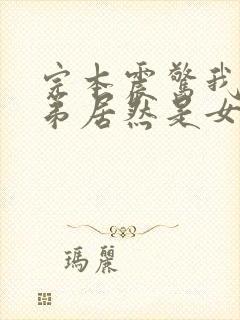 完本震驚我
弟居然是女
瑪麗